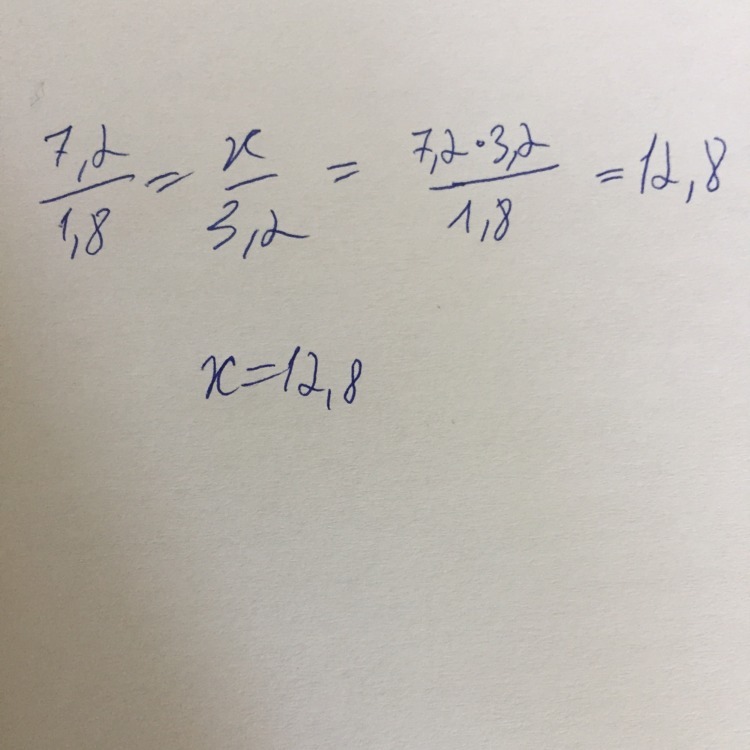 7,2/1,8 = x/3,2 = 7,2·3,2/1,8 = 12,8
x=12,8